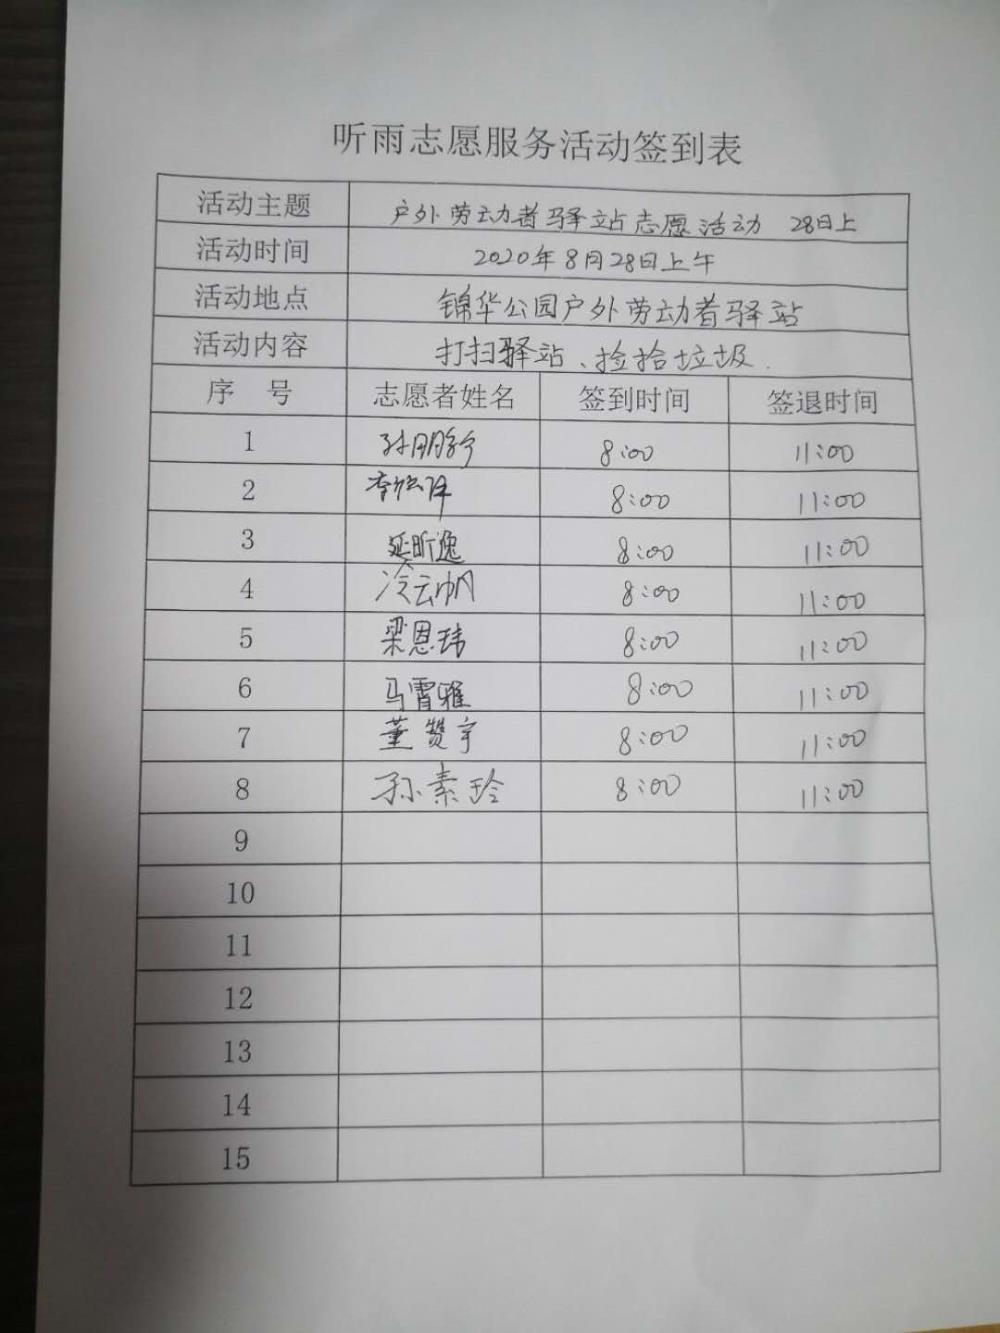 听雨志愿服务活动签到表
活动主题 户外劳动者驿站志愿活动 28日上
活动时间 2020年8月28日上午
活动地点 锦华公园户外劳动者驿站
活动内容 打扫驿站、捡拾垃圾.
序 号 志愿者姓名 签到时间 签退时间
1 8:00 11:00
2 8:00 11:00
3 延昕逸 8:00 11:00
4 冷云帆 8:00 11:00
5 梁恩玮 8:00 11:00
6 马霄雅 8:00 11:00
7 董赞宇 8:00 11:00
8 孙素玲 8:00 11:00
9
10
11
12
13
14
15